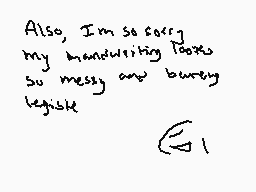 Also, I'm so sorry
my handwriting looks
so messy and barely
legible